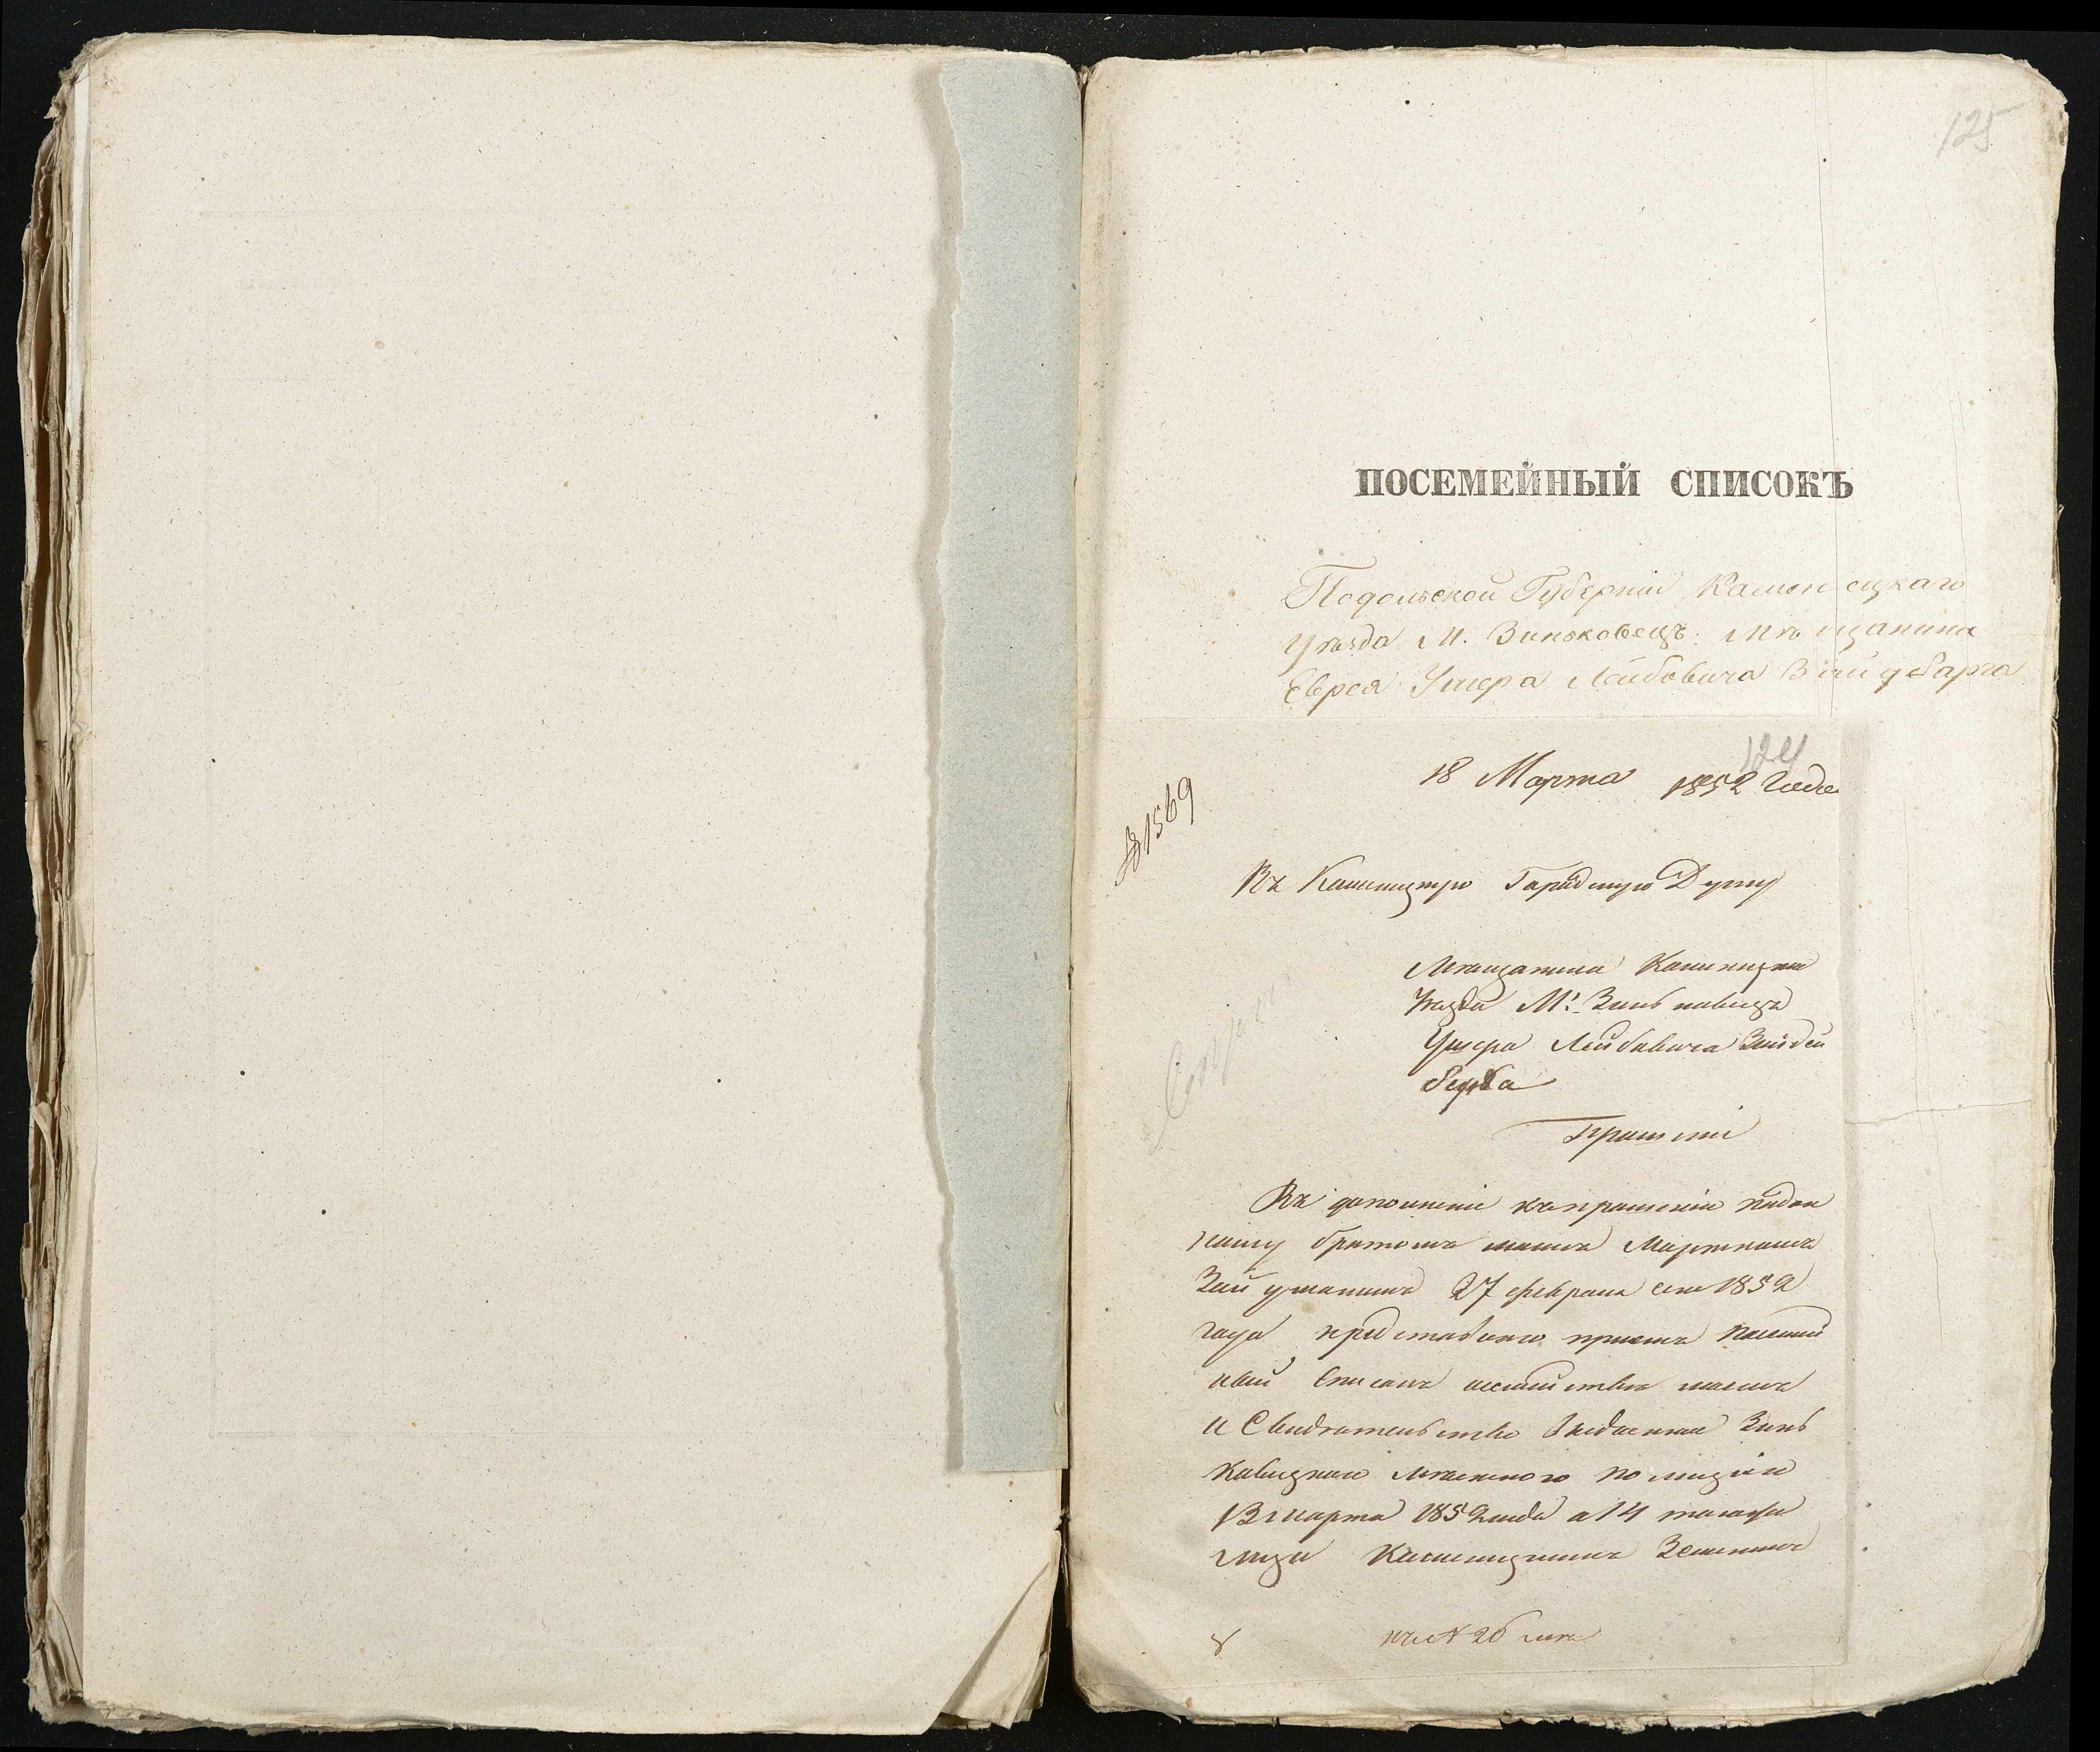 125
ПОСЕМЕЙНЫЙ СПИСОКЪ
Подольской Губерніи Каменецкаго
Уѣзда М. Зиньковецъ Мѣщанина
Еврея Ушера Лейбовича Вайдбарга
124
18 Марта 1852 Года
№ 1569
Въ Каменецкую Городскую Думу
Мѣщанина Каменецкаго
Уѣзда М. Зиньковецъ
Ушера Лейбовича Вайдей
Прошеніе
Въ дополненіе къ прошенію подан
ному братомъ моимъ
27 февраля сего 1852
года представляю при семъ посемей
ный списокъ семейства моего
и Свидѣтельство выданное Зинь
ковецкою мѣстного полиціи
13 марта 1852 года а 14 того
Каменецкимъ Земскимъ
къ № 26